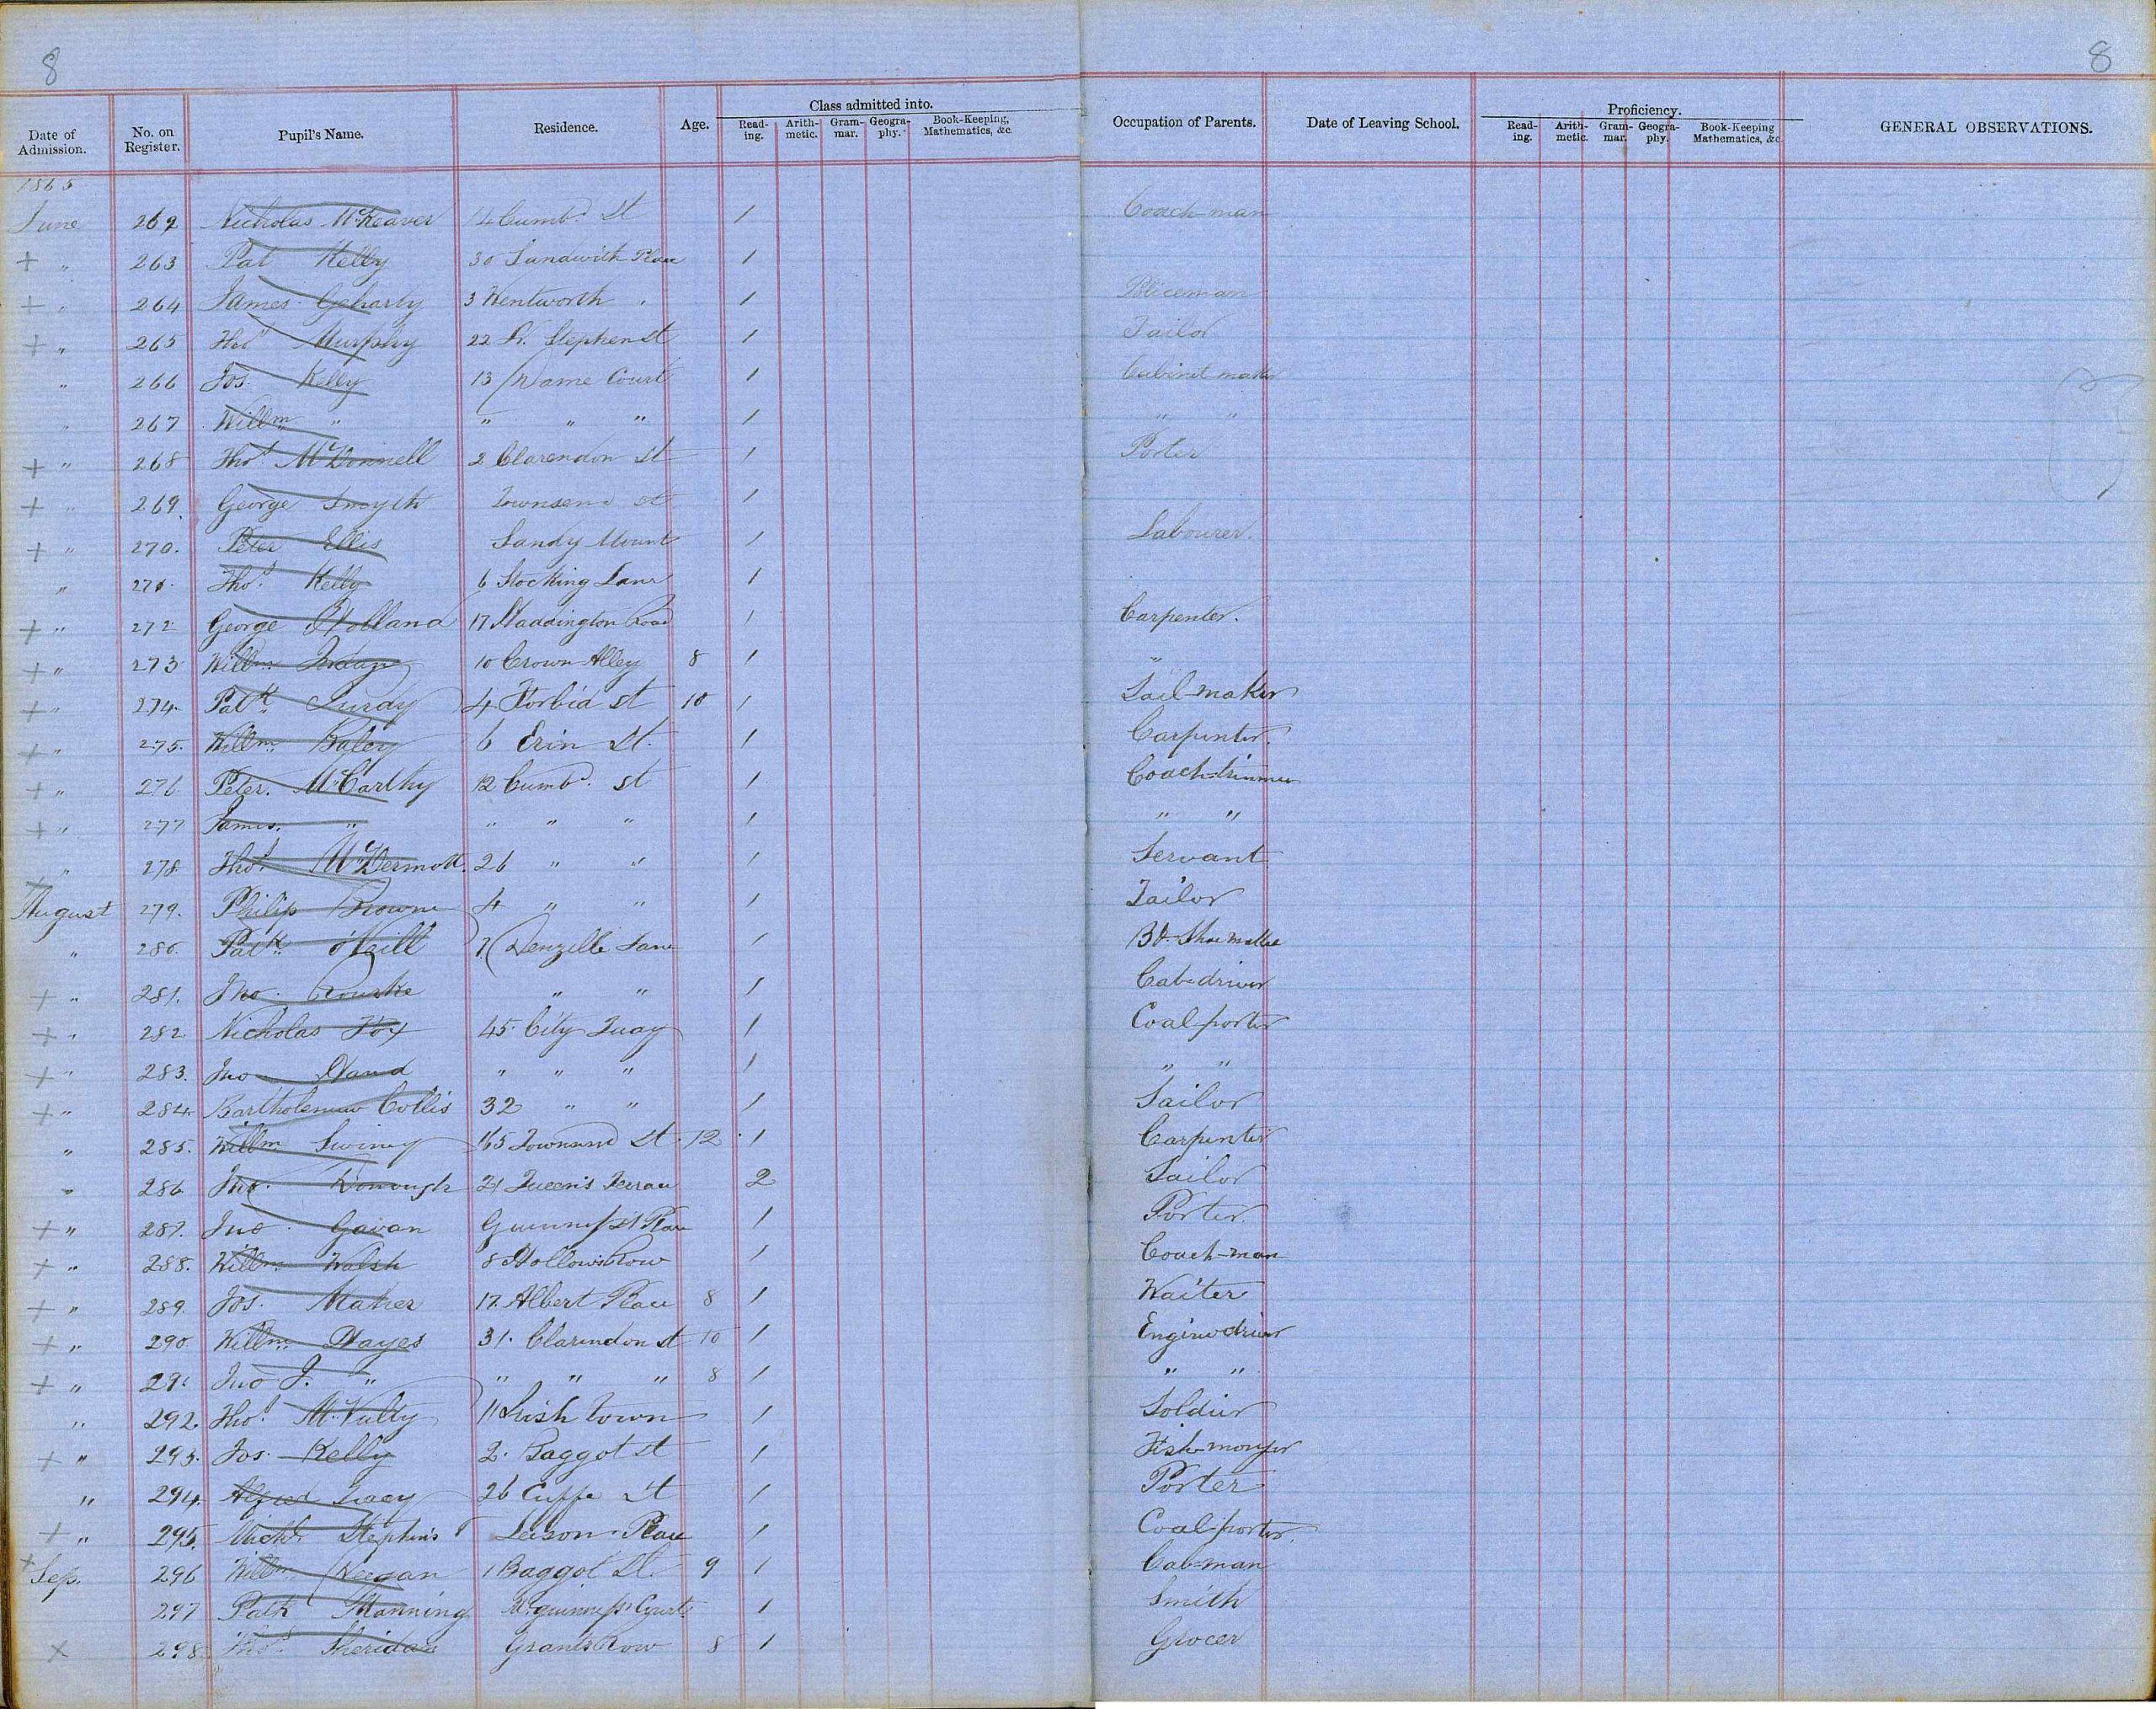 8 8
Date of Admission. No. on Register. Pupil's Name. Residence. Age. Class admitted into. Read-ing. Arith-metic. Gram-mar. Geogra-phy. Book-Keeping, Mathematics, &c. Occupation of Parents. Date of Leaving School. Proficiency. Read-ing. Arith-metic. Gram-mar. Geogra-phy. Book-Keeping Mathematics, &c. GENERAL OBSERVATIONS.
1865
June 262 Nicholas McKeaver 14 Cumbd St 1 Coach-man
+ " 263 Pat Kelly 30 Sandwith Place 1
+ " 264 James Geharty 3 Wentworth " 1 Policeman
+ " 265 Thos Murphy 22 Lr. Stephen St 1 Tailor
" 266 Jos. Kelly 13 Dame Court 1 Cabinet maker
" 267 Willm " " " " 1 " "
+ " 268 Thos McDonnell 2 Clarendon St 1 Porter
+ " 269 George Smyth Townsend St 1
+ " 270. Peter Ellis Sandy Mount 1 Labourer.
" 271. Thos. Kelly 6 Stocking Lane 1
+ " 272 George Holland 17 Haddington Road 1 Carpenter.
+ " 273 Willm 10 Crown Alley 8 1 "
+ " 274. Patk Purdy 4 Forbid St 10 1 Sail-maker
+ " 275. Willm Baley 6 Erin St. 1 Carpenter.
+ " 276 Peter. McCarthy 12 Cumbd. St 1 Coach-trimmer
+ " 277 James. " " " " 1 " "
" 278 Thos McDermott. 26 " " 1 Servant
August 279. Philip Browne 4 " " 1 Tailor
" 280. Patk O'Neill 7 Denzille Lane 1 Bt. Shoe maker
+ " 281. Jno. Rourke " " 1 Cab-driver
+ " 282 Nicholas Fox 45. City Quay 1 Coal-porter
+ " 283. Jno Hand " " " 1 " "
+ " 284. Bartholemew Collis 32 " " 1 Sailor
" 285. Willm Swiney 165 Townsend St. 12 1 Carpenter
" 286 Jno. Donough 21 Queen's Terrace 2 Sailor
+ " 287. Jno. Gavan Guinness St Place 1 Porter.
+ " 288. Willm Walsh 8 Hollows Row 1 Coach-man
+ " 289. Jos. Maher 17. Albert Place 8 1 Waiter
+ " 290 Willm. Hayes 31. Clarendon St 10 1 Engine driver
+ " 291 Jno J. " " " " 8 1 " "
" 292. Thos. McNulty 11 Irish town 1 Soldier
+ " 293. Jos. Kelly 2. Baggot St 1 Fish-monger
" 294. Alfred Tracy 26 Cuffe St 1 Porter
+ " 295. Michl. Stephens Leeson Place 1 Coal-porter.
+ Sep. 296 Willm Keegan 1 Baggot St. 9 1 Cab-man
297 Patk Manning McGuinness Court 1 Smith
x 298 Thos Sheridan Grants Row 8 1 Grocer